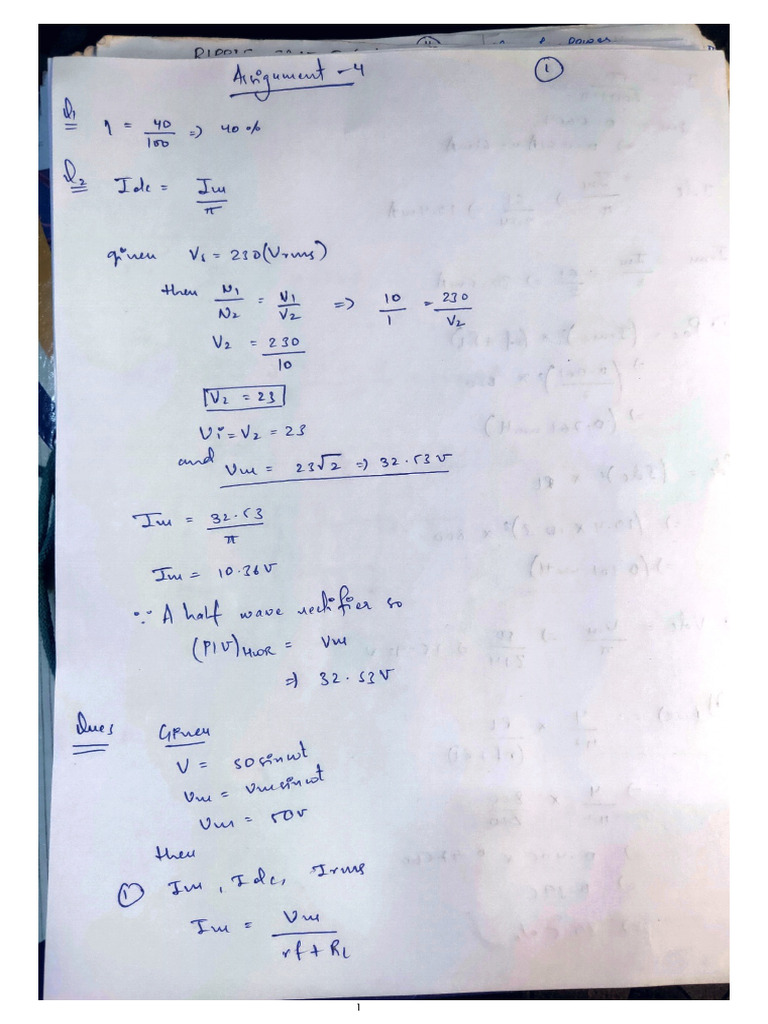 Assignment - 4
1
Q1
η = 40/100 => 40%
Q2 Idc = Im/π
given Vs = 230 (Vrms)
then N1/N2 = V1/V2 => 10/1 = 230/V2
V2 = 230/10
V2 = 23
Vi = V2 = 23
and Vm = 23√2 => 32.53 V
Im = 32.53/π
Im = 10.36 V
∵ A half wave rectifier so
(PIV)HWR = Vm
=> 32.53V
Ques 3 Given
V = 50 sinwt
Vm = Vm sinwt
Vm = 50V
then
1 Im, Idc, Irms
Im = Vm/rf + RL
1